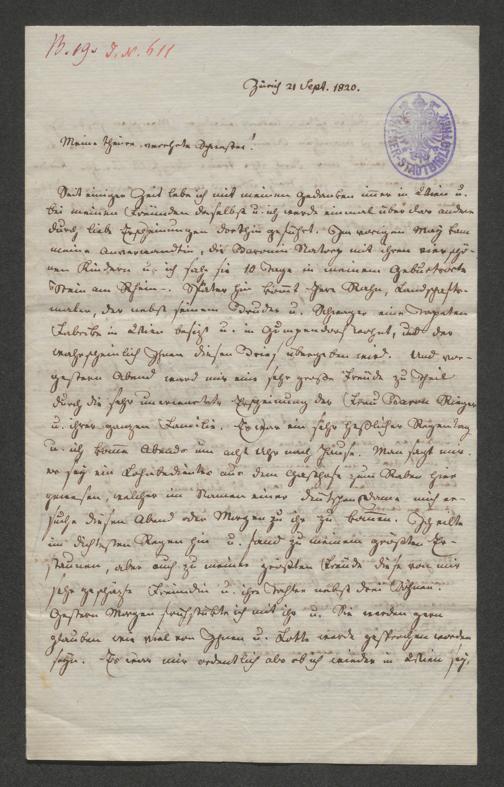 B. 19. J. N. 611
Zürich 21 Sept. 1820.
WIENER STADTBIBLIOTHEK
Meine theure, verehrte Schwester!
Seit einiger Zeit lebe ich mit meinen Gedanken immer in Wien u.
bei meinen Freunden daselbst u. ich werde einmal über das andere
durch liebe Erscheinungen dorthin geführt. Im vorigen May kam
meine Anverwandtin, die Baronin Natorp mit ihren vier schö-
nen Kindern u. ich sah sie 10 Tage in meinem Geburtsorte
Stein am Rhein. Später hin kömmt Herr Rahn, Landschafts-
maler, der nebst seinem Bruder u. Schwager eine Tapeten
Fabrike in Wien besizt u. in Gumpendorf wohnt, und der
wahrscheinlich Ihnen diesen Brief übergeben wird. Und vor-
gestern Abend ward mir eine sehr große Freude zu Theil
durch die sehr unerwartete Erscheinung der Frau Baron Rieger
u. ihrer ganzen Familie. Es war ein sehr häßlicher Regentag
u. ich komme Abends um acht Uhr nach Hause. Man sagt mir
es sey ein Lohnbedienter aus dem Gasthofe zum Raben hier
gewesen, welcher im Namen einer deutschen Dame mich er-
suche diesen Abend oder Morgen zu ihr zu kommen. Ich eilte
im dichtesten Regen hin u. fand zu meinem größten Er-
staunen, aber auch zu meiner größten Freude diese von mir
sehr geschäzte Freundin u. ihre Tochter nebst drei Söhnen.
Gestern Morgen frühstükte ich mit ihr u. Sie werden gern
glauben wie viel von Ihnen u. Lotte wurde gesprochen worden
seyn. Es war mir ordentlich als ob ich wieder in Wien sey,